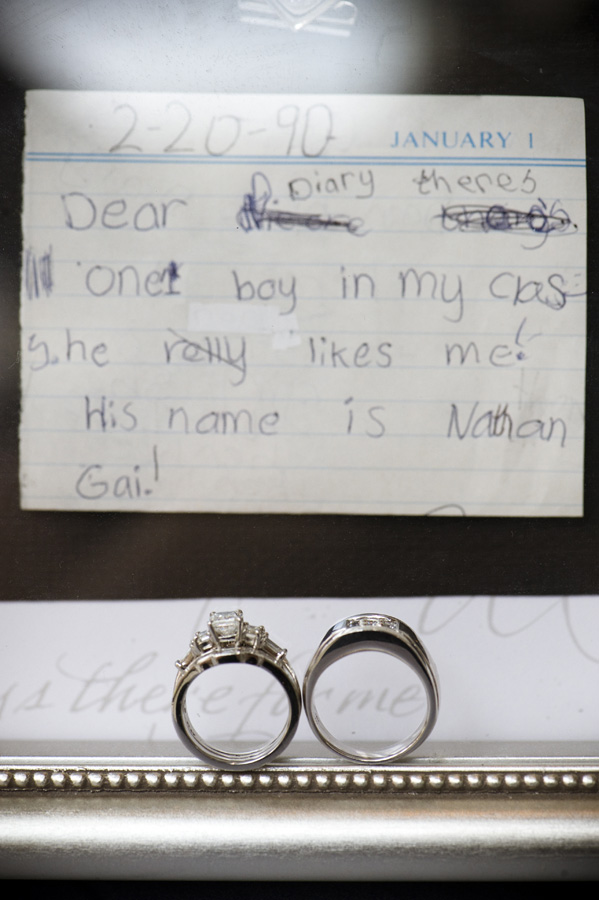 2-20-90 JANUARY 1
Dear D. Diary theres
one boy in my clas
s. he relly likes me!
His name is Nathan
Gai!
ys there for me